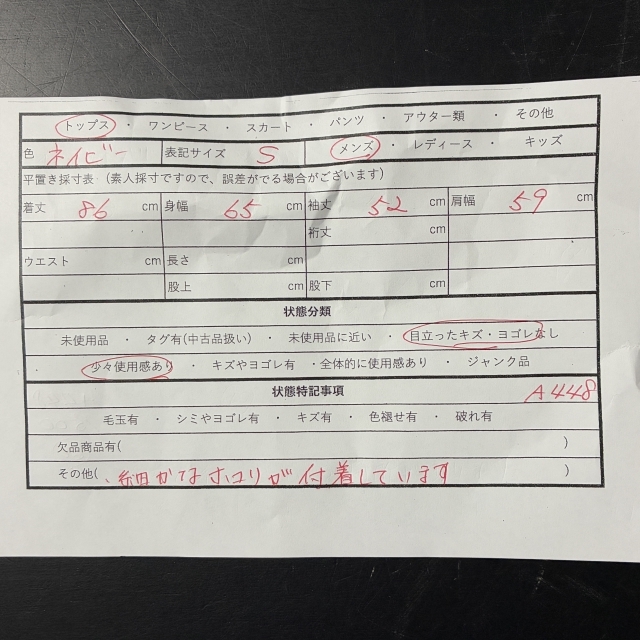 トップス ・ ワンピース ・ スカート ・ パンツ ・ アウター類 ・ その他
色 ネイビー 表記サイズ S メンズ ・ レディース ・ キッズ
平置き採寸表 (素人採寸ですので、誤差がでる場合がございます)
着丈 86 cm 身幅 65 cm 袖丈 52 cm 肩幅 59 cm
裄丈 cm
ウエスト cm 長さ cm
股上 cm 股下 cm
状態分類
未使用品 ・ タグ有(中古品扱い) ・ 未使用品に近い ・ 目立ったキズ・ヨゴレなし
・ 少々使用感あり ・ キズやヨゴレ有 ・全体的に使用感あり ・ ジャンク品
状態特記事項 A448
毛玉有 ・ シミやヨゴレ有 ・ キズ有 ・ 色褪せ有 ・ 破れ有
欠品商品有( )
その他( 、細かなホコリが付着しています )